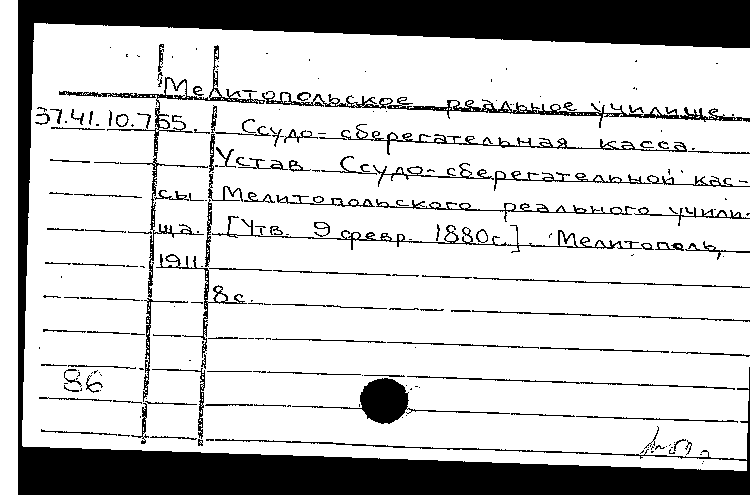 Мелитопольское реальное училище.
37.41.10.755. Ссудо-сберегательная касса.
Устав Ссудо-сберегательной кас-
сы Мелитопольского реального учили-
ща. [Утв. 9 февр. 1880г.]. Мелитополь,
1911
8с.
86